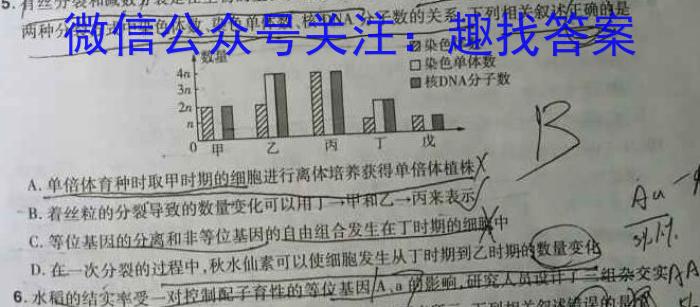 5.有丝分裂和减数分裂是
两种分 染色体数 核DNA分子数的关系,下列相关叙述正确的是
微信公众号关注:趣找答案
数量
染色体数
染色单体数
核DNA分子数
4n
3n
2n
n
0 甲 乙 丙 丁 戊
B
A.单倍体育种时取甲时期的细胞进行离体培养获得单倍体植株
B.着丝粒的分裂导致的数量变化可以用丁→甲和乙→丙来表示
C.等位基因的分离和非等位基因的自由组合发生在丁时期的细胞中
D.在一次分裂的过程中,秋水仙素可以使细胞发生从丁时期到乙时期的数量变化
6.水稻的结实率受一对控制配子育性的等位基因A、a的影响,研究人员设计了三组杂交实
下列相关叙述错误的是